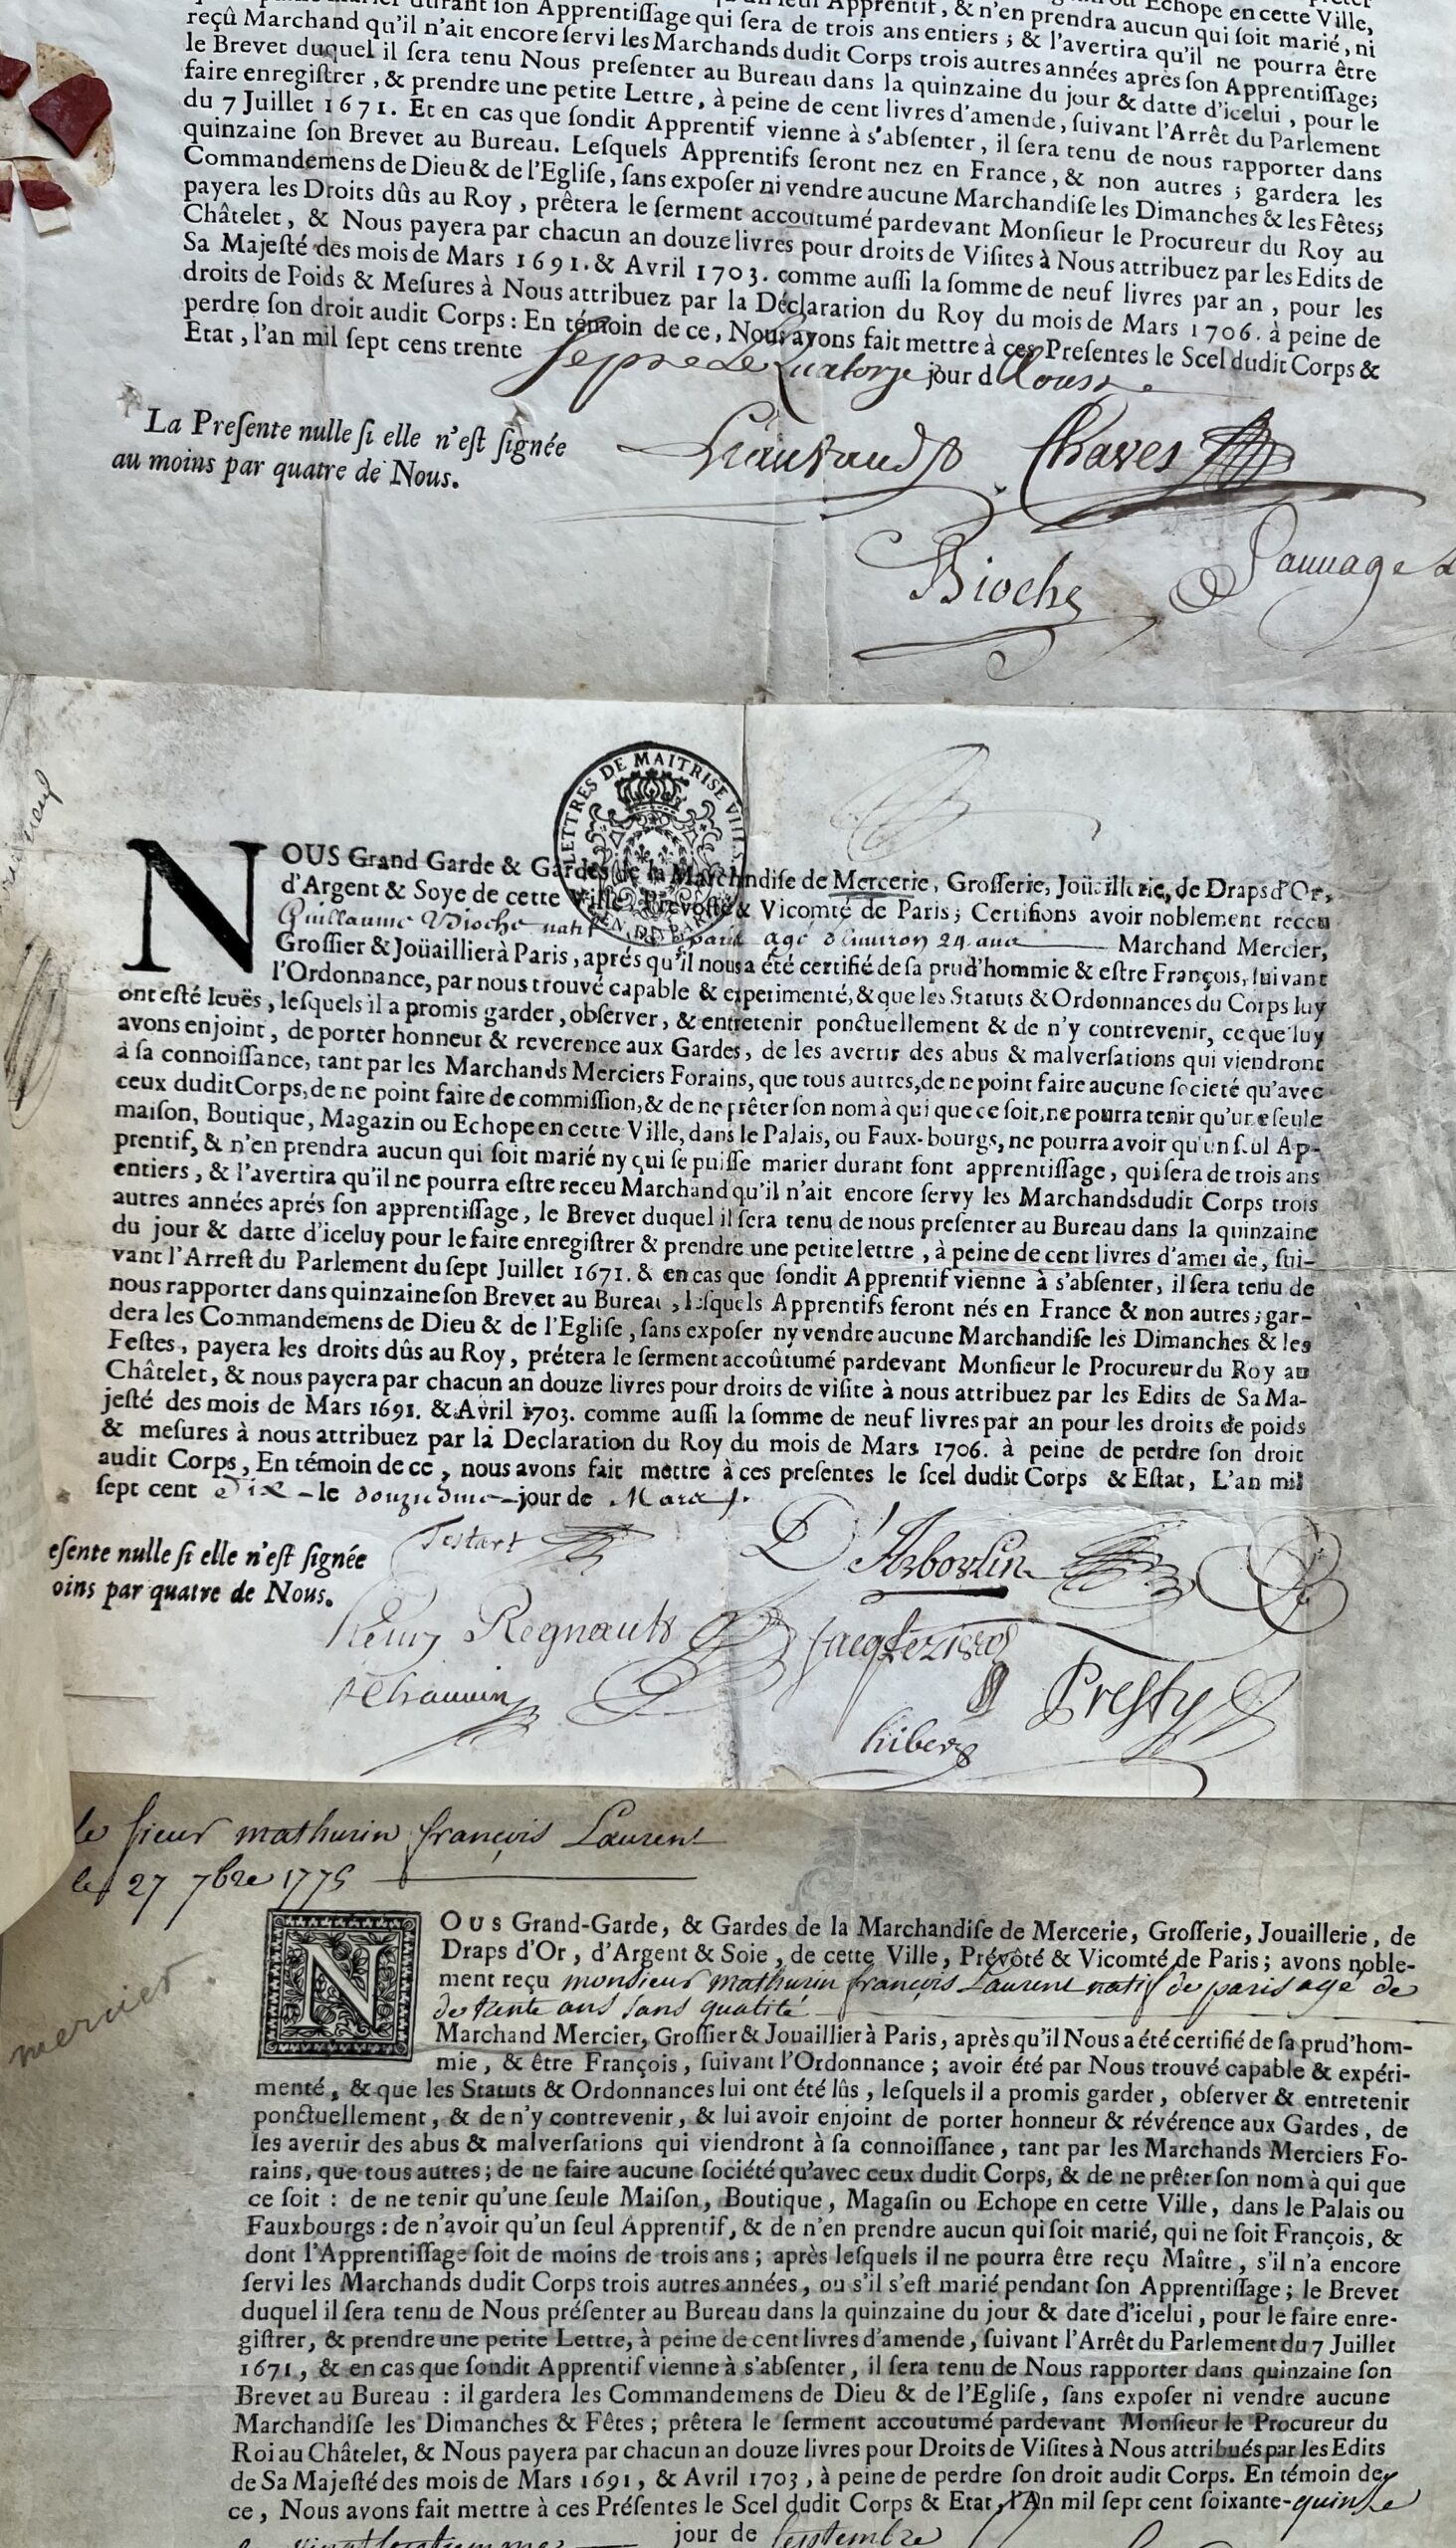 durant son Apprentiſſage qui ſera de trois ans entiers ; & l'avertira qu'il ne pourra être
reçû Marchand qu'il n'ait encore ſervi les Marchands dudit Corps trois autres années après ſon Apprentiſſage;
le Brevet duquel il ſera tenu Nous preſenter au Bureau dans la quinzaine du jour & datte d'icelui , pour le
faire enregiſtrer , & prendre une petite Lettre, à peine de cent livres d'amende, ſuivant l'Arrêt du Parlement
du 7 Juillet 1671. Et en cas que ſondit Apprentif vienne à s'abſenter, il ſera tenu de nous rapporter dans
quinzaine ſon Brevet au Bureau. Leſquels Apprentifs ſeront nez en France, & non autres ; gardera les
Commandemens de Dieu & de l'Egliſe, ſans expoſer ni vendre aucune Marchandiſe les Dimanches & les Fêtes;
payera les Droits dûs au Roy, prêtera le ſerment accoutumé pardevant Monſieur le Procureur du Roy au
Châtelet, & Nous payera par chacun an douze livres pour droits de Viſites à Nous attribuez par les Edits de
Sa Majeſté des mois de Mars 1691. & Avril 1703. comme auſſi la ſomme de neuf livres par an , pour les
droits de Poids & Meſures à Nous attribuez par la Déclaration du Roy du mois de Mars 1706. à peine de
perdre ſon droit audit Corps : En témoin de ce, Nous avons fait mettre à ces Preſentes le Scel dudit Corps &
Etat, l'an mil ſept cens trente ſept Le Quatorze jour d'Aoust
La Preſente nulle ſi elle n'eſt ſignée
au moins par quatre de Nous.
Chaves
Bioche
Sauvage
LETTRES DE MAITRISE VIII S
GEN DE PARIS
NOUS Grand Garde & Gardes de la Marchandiſe de Mercerie, Groſſerie, Joüaillerie, de Draps d'Or,
d'Argent & Soye de cette Ville, Prevoſté & Vicomté de Paris; Certifions avoir noblement receu
Guillaume Bioche natif de paris agé d'environ 24 ans Marchand Mercier,
Groſſier & Joüaillier à Paris, aprés qu'il nous a été certifié de ſa prud'hommie & eſtre François, ſuivant
l'Ordonnance, par nous trouvé capable & experimenté, & que les Statuts & Ordonnances du Corps luy
ont eſté leuës, leſquels il a promis garder, obſerver, & entretenir ponctuellement & de n'y contrevenir, ce que luy
avons enjoint, de porter honneur & reverence aux Gardes, de les avertir des abus & malverſations qui viendront
à ſa connoiſſance, tant par les Marchands Merciers Forains, que tous autres, de ne point faire aucune ſocieté qu'avec
ceux dudit Corps, de ne point faire de commiſſion, & de ne prêter ſon nom à qui que ce ſoit, ne pourra tenir qu'une ſeule
maiſon, Boutique, Magazin ou Echope en cette Ville, dans le Palais, ou Faux-bourgs, ne pourra avoir qu'un ſeul Ap-
prentif, & n'en prendra aucun qui ſoit marié ny qui ſe puiſſe marier durant ſont apprentiſſage, qui ſera de trois ans
entiers, & l'avertira qu'il ne pourra eſtre receu Marchand qu'il n'ait encore ſervy les Marchands dudit Corps trois
autres années aprés ſon apprentiſſage, le Brevet duquel il ſera tenu de nous preſenter au Bureau dans la quinzaine
du jour & datte d'iceluy pour le faire enregiſtrer & prendre une petite lettre, à peine de cent livres d'amende, ſui-
vant l'Arreſt du Parlement du ſept Juillet 1671. & en cas que ſondit Apprentif vienne à s'abſenter, il ſera tenu de
nous rapporter dans quinzaine ſon Brevet au Bureau, leſquels Apprentifs ſeront nés en France & non autres; gar-
dera les Commandemens de Dieu & de l'Egliſe, ſans expoſer ny vendre aucune Marchandiſe les Dimanches & les
Feſtes, payera les droits dûs au Roy, prétera le ſerment accoûtumé pardevant Monſieur le Procureur du Roy au
Châtelet, & nous payera par chacun an douze livres pour droits de viſite à nous attribuez par les Edits de Sa Ma-
jeſté des mois de Mars 1691. & Avril 1703. comme auſſi la ſomme de neuf livres par an pour les droits de poids
& meſures à nous attribuez par la Declaration du Roy du mois de Mars 1706. à peine de perdre ſon droit
audit Corps, En témoin de ce, nous avons fait mettre à ces preſentes le ſcel dudit Corps & Eſtat, L'an mil
ſept cent Dix - le douzieſme - jour de Mars
eſente nulle ſi elle n'eſt ſignée
oins par quatre de Nous.
Testart
D'Arboulin
Remy Regnault
Chauvin
Presty
hibert
le ſieur mathurin françois Laurent
le 27 7bre 1775
mercier
NOUS Grand-Garde, & Gardes de la Marchandiſe de Mercerie, Groſſerie, Jouaillerie, de
Draps d'Or, d'Argent & Soie, de cette Ville, Prévôté & Vicomté de Paris; avons noble-
ment reçu monsieur mathurin françois Laurent natif de paris agé de
de trente ans sans qualité
Marchand Mercier, Groſſier & Jouaillier à Paris, après qu'il Nous a été certifié de ſa prud'hom-
mie, & être François, ſuivant l'Ordonnance ; avoir été par Nous trouvé capable & expéri-
menté, & que les Statuts & Ordonnances lui ont été lûs, leſquels il a promis garder, obſerver & entretenir
ponctuellement, & de n'y contrevenir, & lui avoir enjoint de porter honneur & révérence aux Gardes, de
les avertir des abus & malverſations qui viendront à ſa connoiſſance, tant par les Marchands Merciers Fo-
rains, que tous autres; de ne faire aucune ſociété qu'avec ceux dudit Corps, & de ne prêter ſon nom à qui que
ce ſoit : de ne tenir qu'une ſeule Maiſon, Boutique, Magaſin ou Echope en cette Ville, dans le Palais ou
Fauxbourgs : de n'avoir qu'un ſeul Apprentif, & de n'en prendre aucun qui ſoit marié, qui ne ſoit François, &
dont l'Apprentiſſage ſoit de moins de trois ans ; après leſquels il ne pourra être reçu Maître, s'il n'a encore
ſervi les Marchands dudit Corps trois autres années, ou s'il s'eſt marié pendant ſon Apprentiſſage ; le Brevet
duquel il ſera tenu de Nous préſenter au Bureau dans la quinzaine du jour & date d'icelui, pour le faire enre-
giſtrer, & prendre une petite Lettre, à peine de cent livres d'amende, ſuivant l'Arrêt du Parlement du 7 Juillet
1671, & en cas que ſondit Apprentif vienne à s'abſenter, il ſera tenu de Nous rapporter dans quinzaine ſon
Brevet au Bureau : il gardera les Commandemens de Dieu & de l'Egliſe, ſans expoſer ni vendre aucune
Marchandiſe les Dimanches & Fêtes ; prêtera le ſerment accoutumé pardevant Monſieur le Procureur du
Roi au Châtelet, & Nous payera par chacun an douze livres pour Droits de Viſites à Nous attribués par les Edits
de Sa Majeſté des mois de Mars 1691, & Avril 1703, à peine de perdre ſon droit audit Corps. En témoin de
ce, Nous avons fait mettre à ces Préſentes le Scel dudit Corps & Etat, l'An mil ſept cent ſoixante-quinze
jour de Septembre